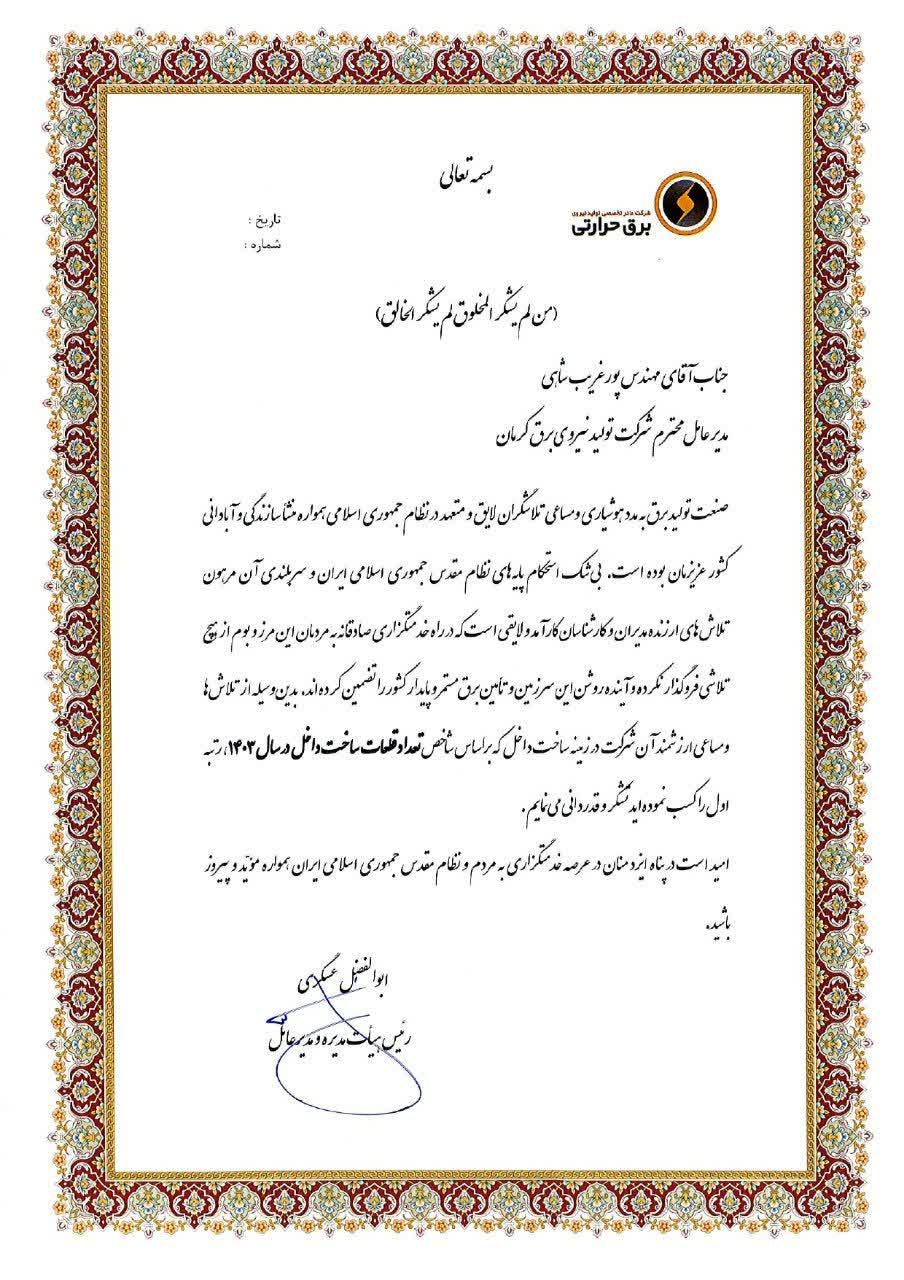 بسمه تعالی
شرکت مادر تخصصی تولید نیروی
برق حرارتی
تاریخ :
شماره :
(من لم یشکر المخلوق لم یشکر الخالق)
جناب آقای مهندس پور غریب شاهی
مدیر عامل محترم شرکت تولید نیروی برق کرمان
صنعت تولید برق به مدد هوشیاری و مساعی تلاشگران لایق و متعهد در نظام جمهوری اسلامی همواره منشأ سازندگی و آبادانی
کشور عزیزمان بوده است. بی شک استحکام پایه های نظام مقدس جمهوری اسلامی ایران و سربلندی آن مرهون
تلاش های ارزنده مدیران و کارشناسان کارآمد و لایقی است که در راه خدمتگزاری صادقانه به مردمان این مرز و بوم از هیچ
تلاشی فروگذار نکرده و آینده روشن این سرزمین و تأمین برق مستمر و پایدار کشور را تضمین کرده اند. بدین وسیله از تلاش ها
و مساعی ارزشمند آن شرکت در زمینه ساخت داخل که بر اساس شاخص تعداد قطعات ساخت داخل در سال ۱۴۰۳، رتبه
اول را کسب نموده اید تشکر و قدردانی می نمایم.
امید است در پناه ایزد منان در عرصه خدمتگزاری به مردم و نظام مقدس جمهوری اسلامی ایران همواره مؤیّد و پیروز
باشید.
ابوالفضل عسکری
رئیس هیأت مدیره و مدیر عامل